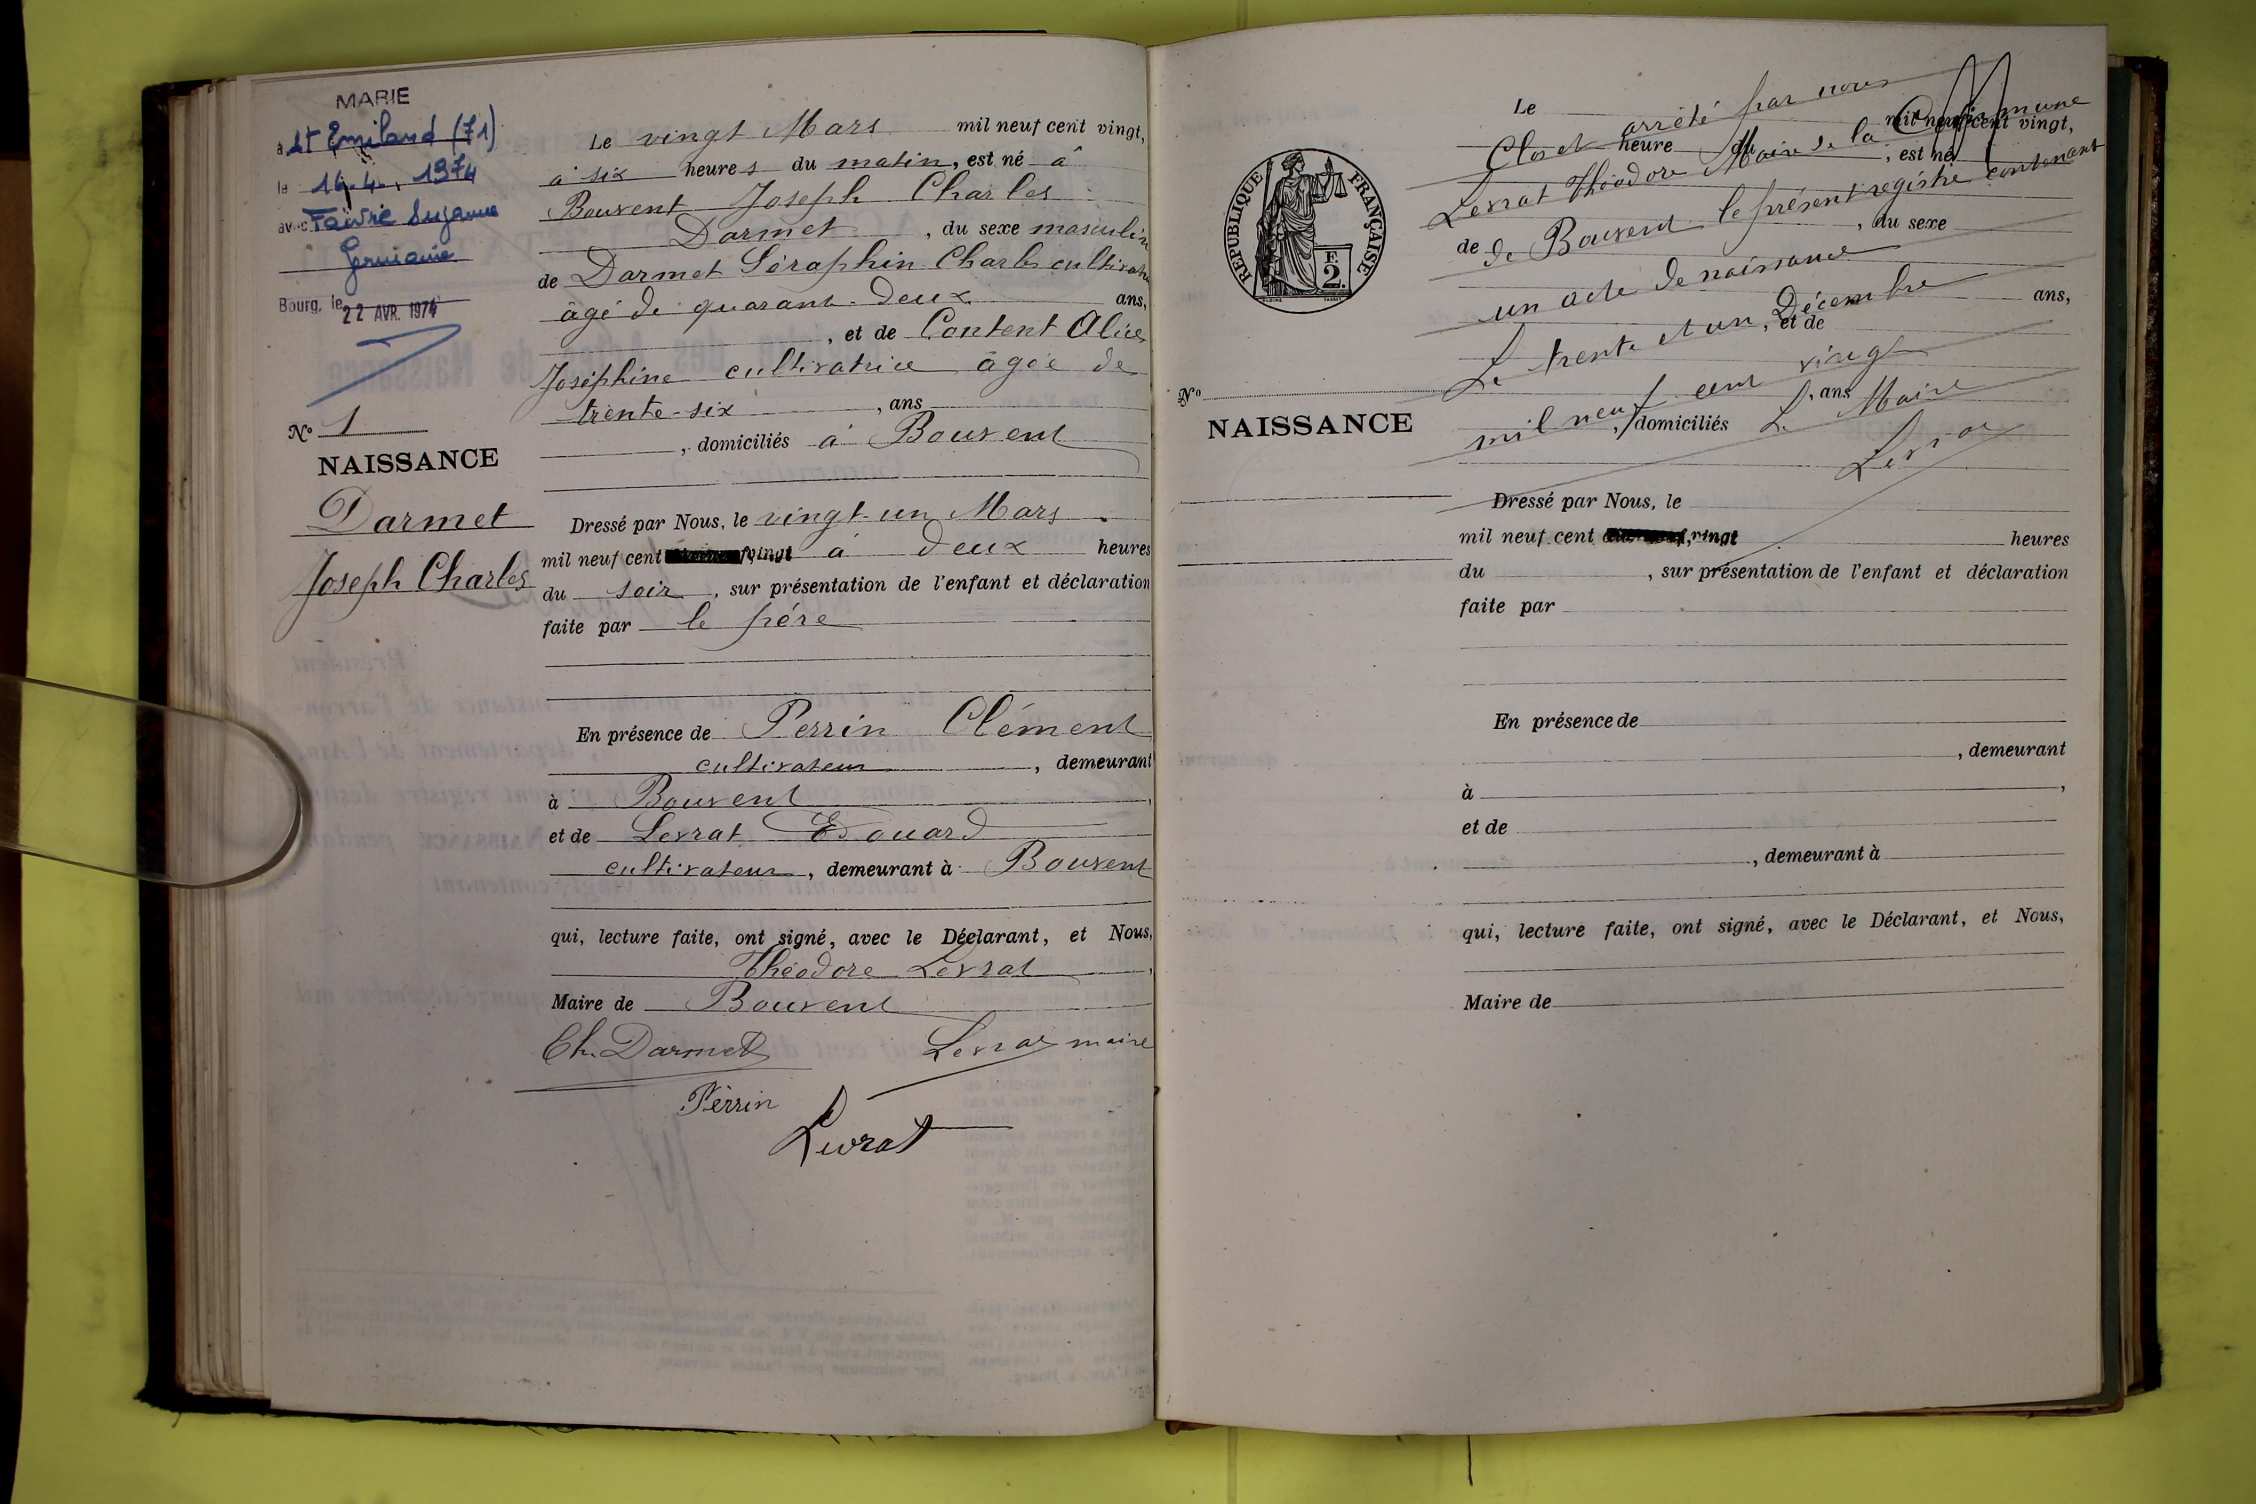 MARIE
à St Emiland (71)
le 16.4., 1974
avec Faivre Suzanne
Germaine
Bourg, le 22 AVR. 1974
No 1
NAISSANCE
Darmet
Joseph Charles
Le vingt Mars mil neuf cent vingt,
à six heures du matin, est né à
Bouvent Joseph Charles
Darmet, du sexe masculin
de Darmet Séraphin Charles cultivateur
âgé de quarante-deux ans,
, et de Content Alice
Joséphine cultivatrice âgée de
trente-six, ans
, domiciliés à Bouvent
Dressé par Nous, le vingt-un Mars
mil neuf cent vingt à deux heures
du soir, sur présentation de l'enfant et déclaration
faite par le père
En présence de Perrin Clément
cultivateur, demeurant
à Bouvent,
et de Levrat Edouard
cultivateur, demeurant à Bouvent
qui, lecture faite, ont signé, avec le Déclarant, et Nous,
Théodore Levrat,
Maire de Bouvent
Ch. Darmet Levrat maire
Perrin
Levrat
RÉPUBLIQUE FRANÇAISE
F.
2.
No
NAISSANCE
Le mil neuf cent vingt,
heure du, est né
de, du sexe
ans,
, et de
, ans
, domiciliés
Clos et arrêté par nous
Levrat Théodore Maire de la Commune
de Bouvent le présent registre contenant
un acte de naissance
Le trente et un Décembre
mil neuf cent vingt
Le Maire
Levrat
Dressé par Nous, le
mil neuf cent vingt heures
du, sur présentation de l'enfant et déclaration
faite par
En présence de
, demeurant
à,
et de
, demeurant à
qui, lecture faite, ont signé, avec le Déclarant, et Nous,
Maire de